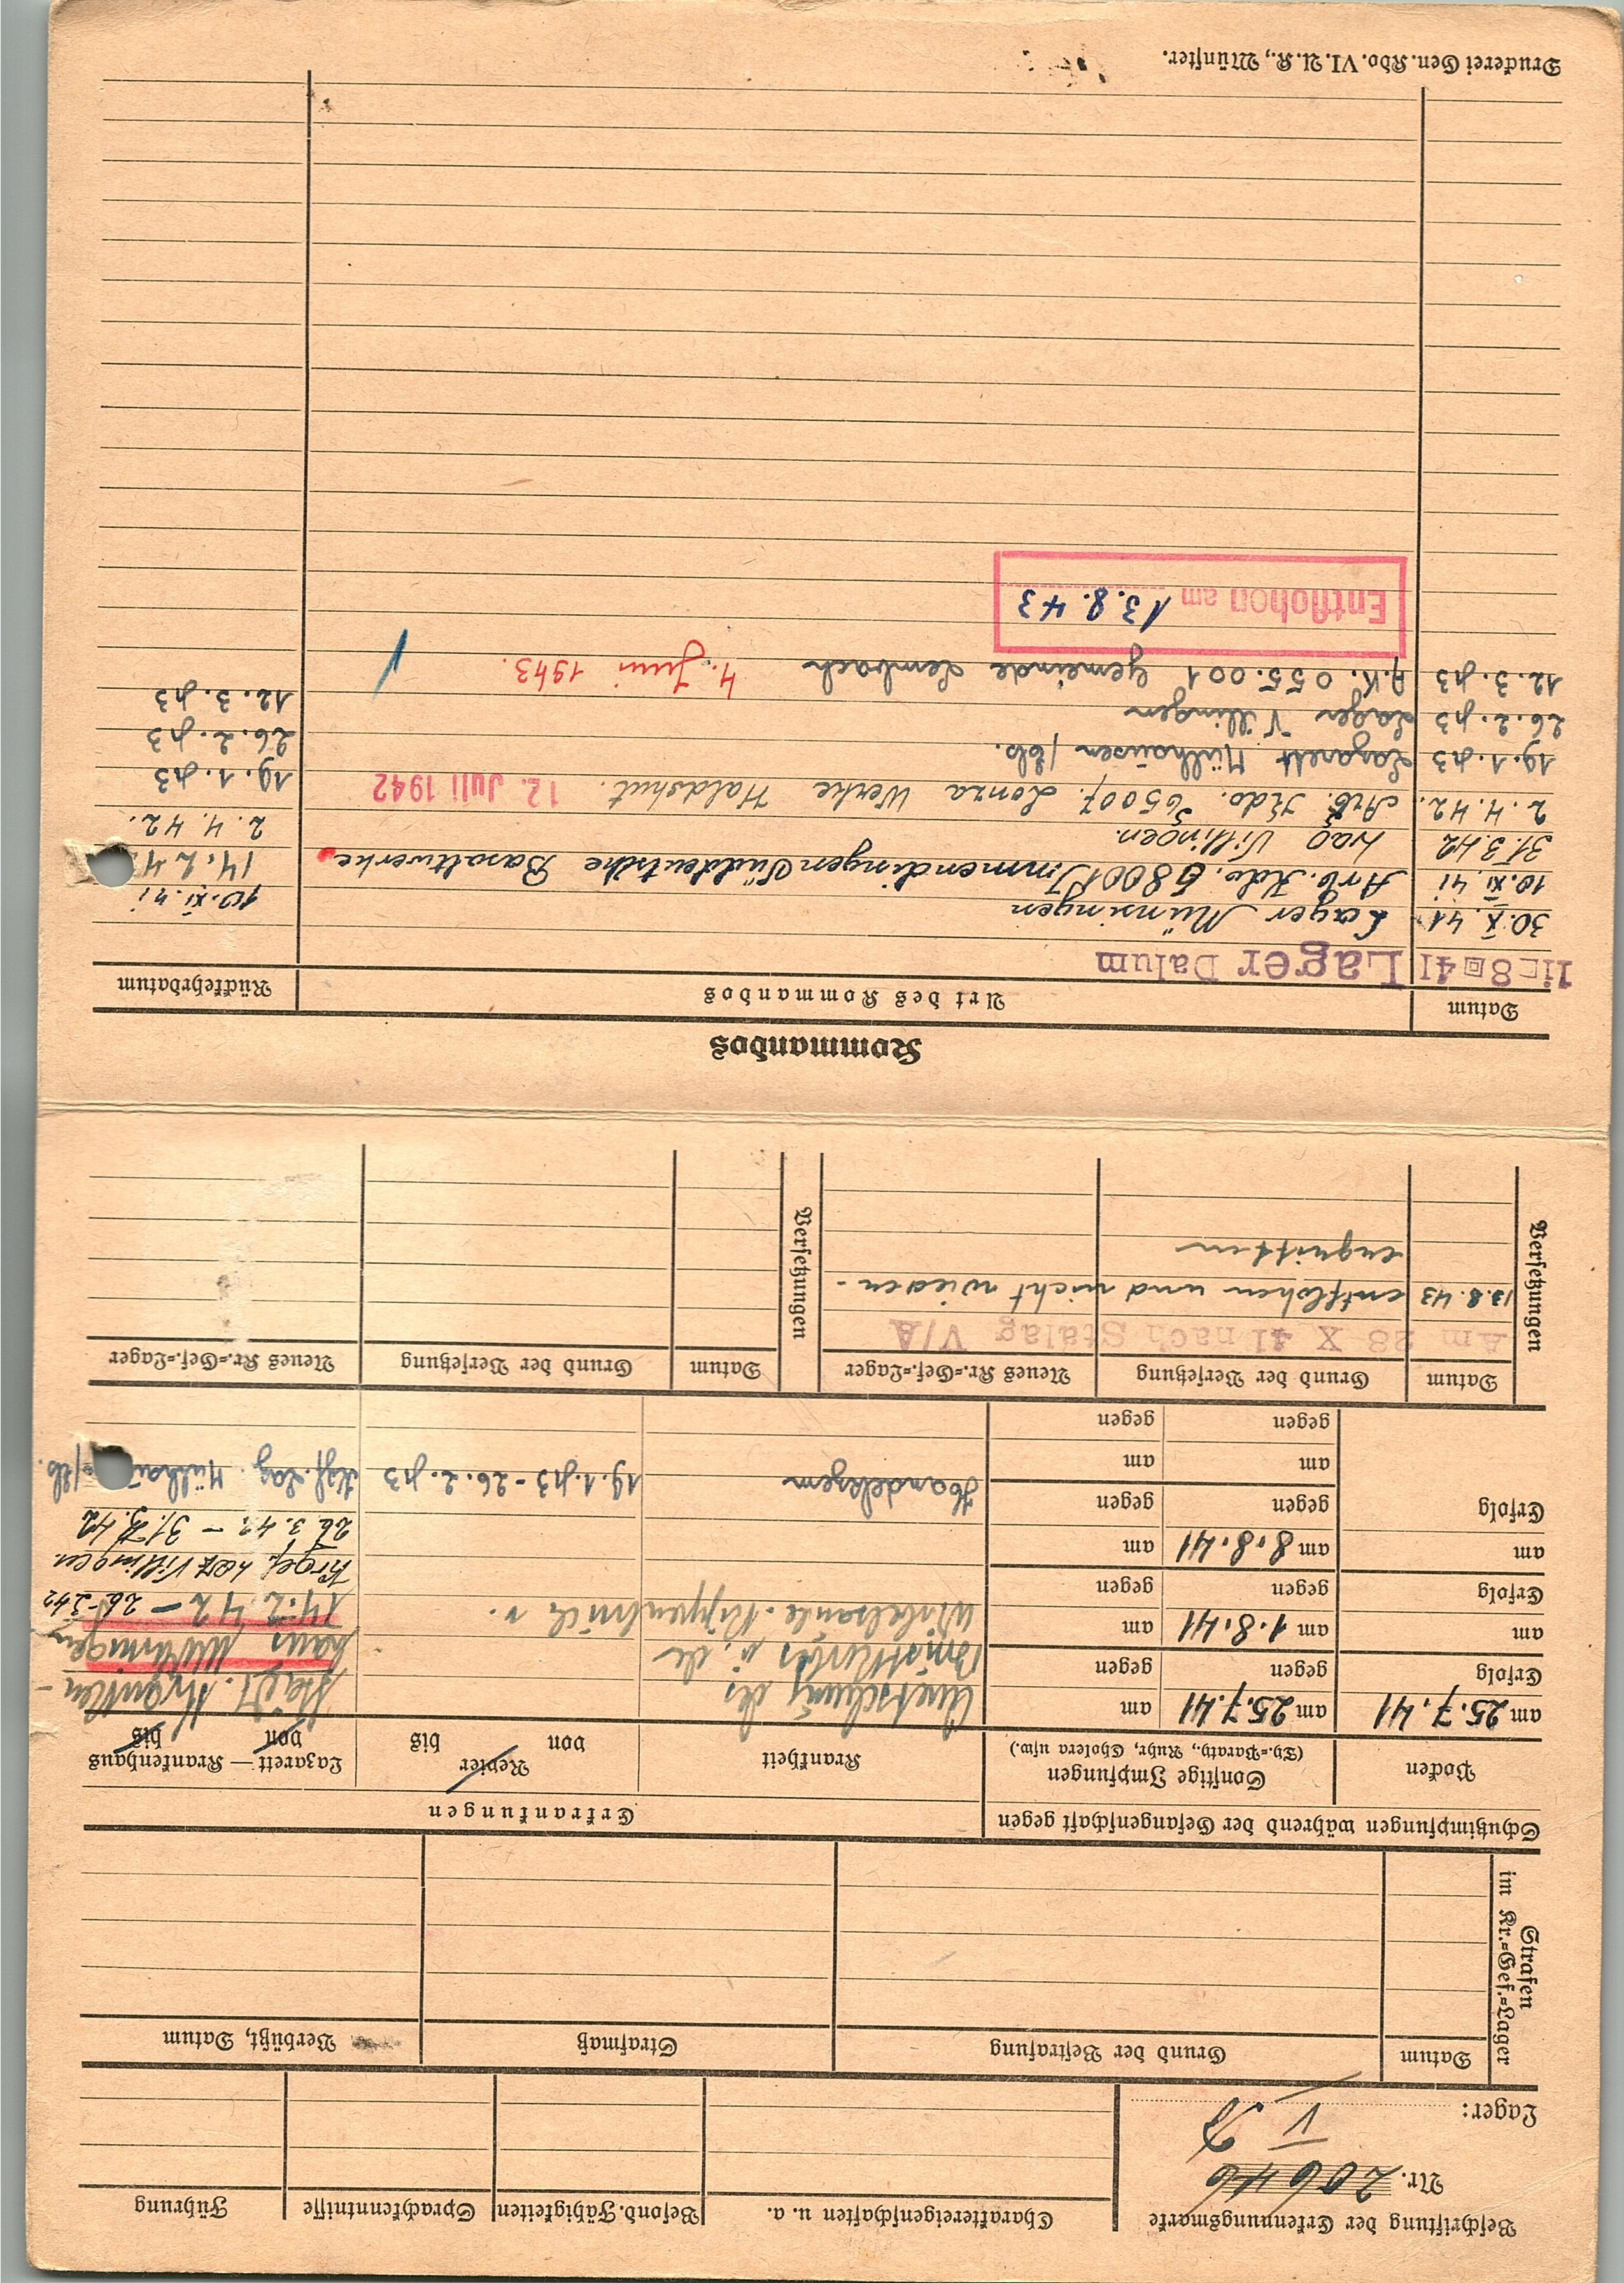 Beschriftung der Erkennungsmarke
Nr. 20646
Lager: V D
Charaktereigenschaften u. a.
Besond. Fähigkeiten
Sprachkenntnisse
Führung
Strafen
im Kr.=Gef.=Lager
Datum
Grund der Bestrafung
Strafmaß
Verbüßt, Datum
Schutzimpfungen während der Gefangenschaft gegen
Erkrankungen
Pocken
Sonstige Impfungen
(Ty.=Paraty., Ruhr, Cholera usw.)
Krankheit
Revier
von bis
Lazarett — Krankenhaus
von bis
am 25.7.41
Erfolg
am
Erfolg
am
Erfolg
am 25.7.41
gegen
am 1.8.41
gegen
am 8.8.41
gegen
am
gegen
am
gegen
am
gegen
am
gegen
am
gegen
Quetschung des
Brustkorbs u. der
Wirbelsäule. Rippenbrüche
Städt. Kranken-
haus
14.2.42 – 26.3.42
Krgef. Laz Villingen
26.3.42 – 31.3.42
Handekzem
19.1.43 - 26.2.43
Kgf. Laz. /Els.
Versetzungen
Datum
Grund der Versetzung
Neues Kr.=Gef.=Lager
Versetzungen
Datum
Grund der Versetzung
Neues Kr.=Gef.=Lager
Am 28 X 41 nach Stalag V/A
13.8.43 entflohen und nicht wieder-
ergriffen
Kommandos
Datum
Art des Kommandos
Rückkehrdatum
11 8 41 Lager Dalum
30.X.41 Lager Münsingen 10.XI.41
10.XI.41 Arb. Kdo. 6800 Immendingen Süddeutsche Basaltwerke 14.2.4
31.3.42 Villingen. 2.4.42.
2.4.42. Arb. Kdo. 6500 Lonza Werke Waldshut. 12. Juli 1942 19.1.43
19.1.43 Lazarett Mülhausen /Els. 26.2.43
26.2.43 Lager Villingen 12.3.43
12.3.43 A.K. 055.001 Gemeinde Lembach 4. Juni 1943.
Entflohen am 13.8.43
Druckerei Gen. Kdo. VI. A. K., Münster.